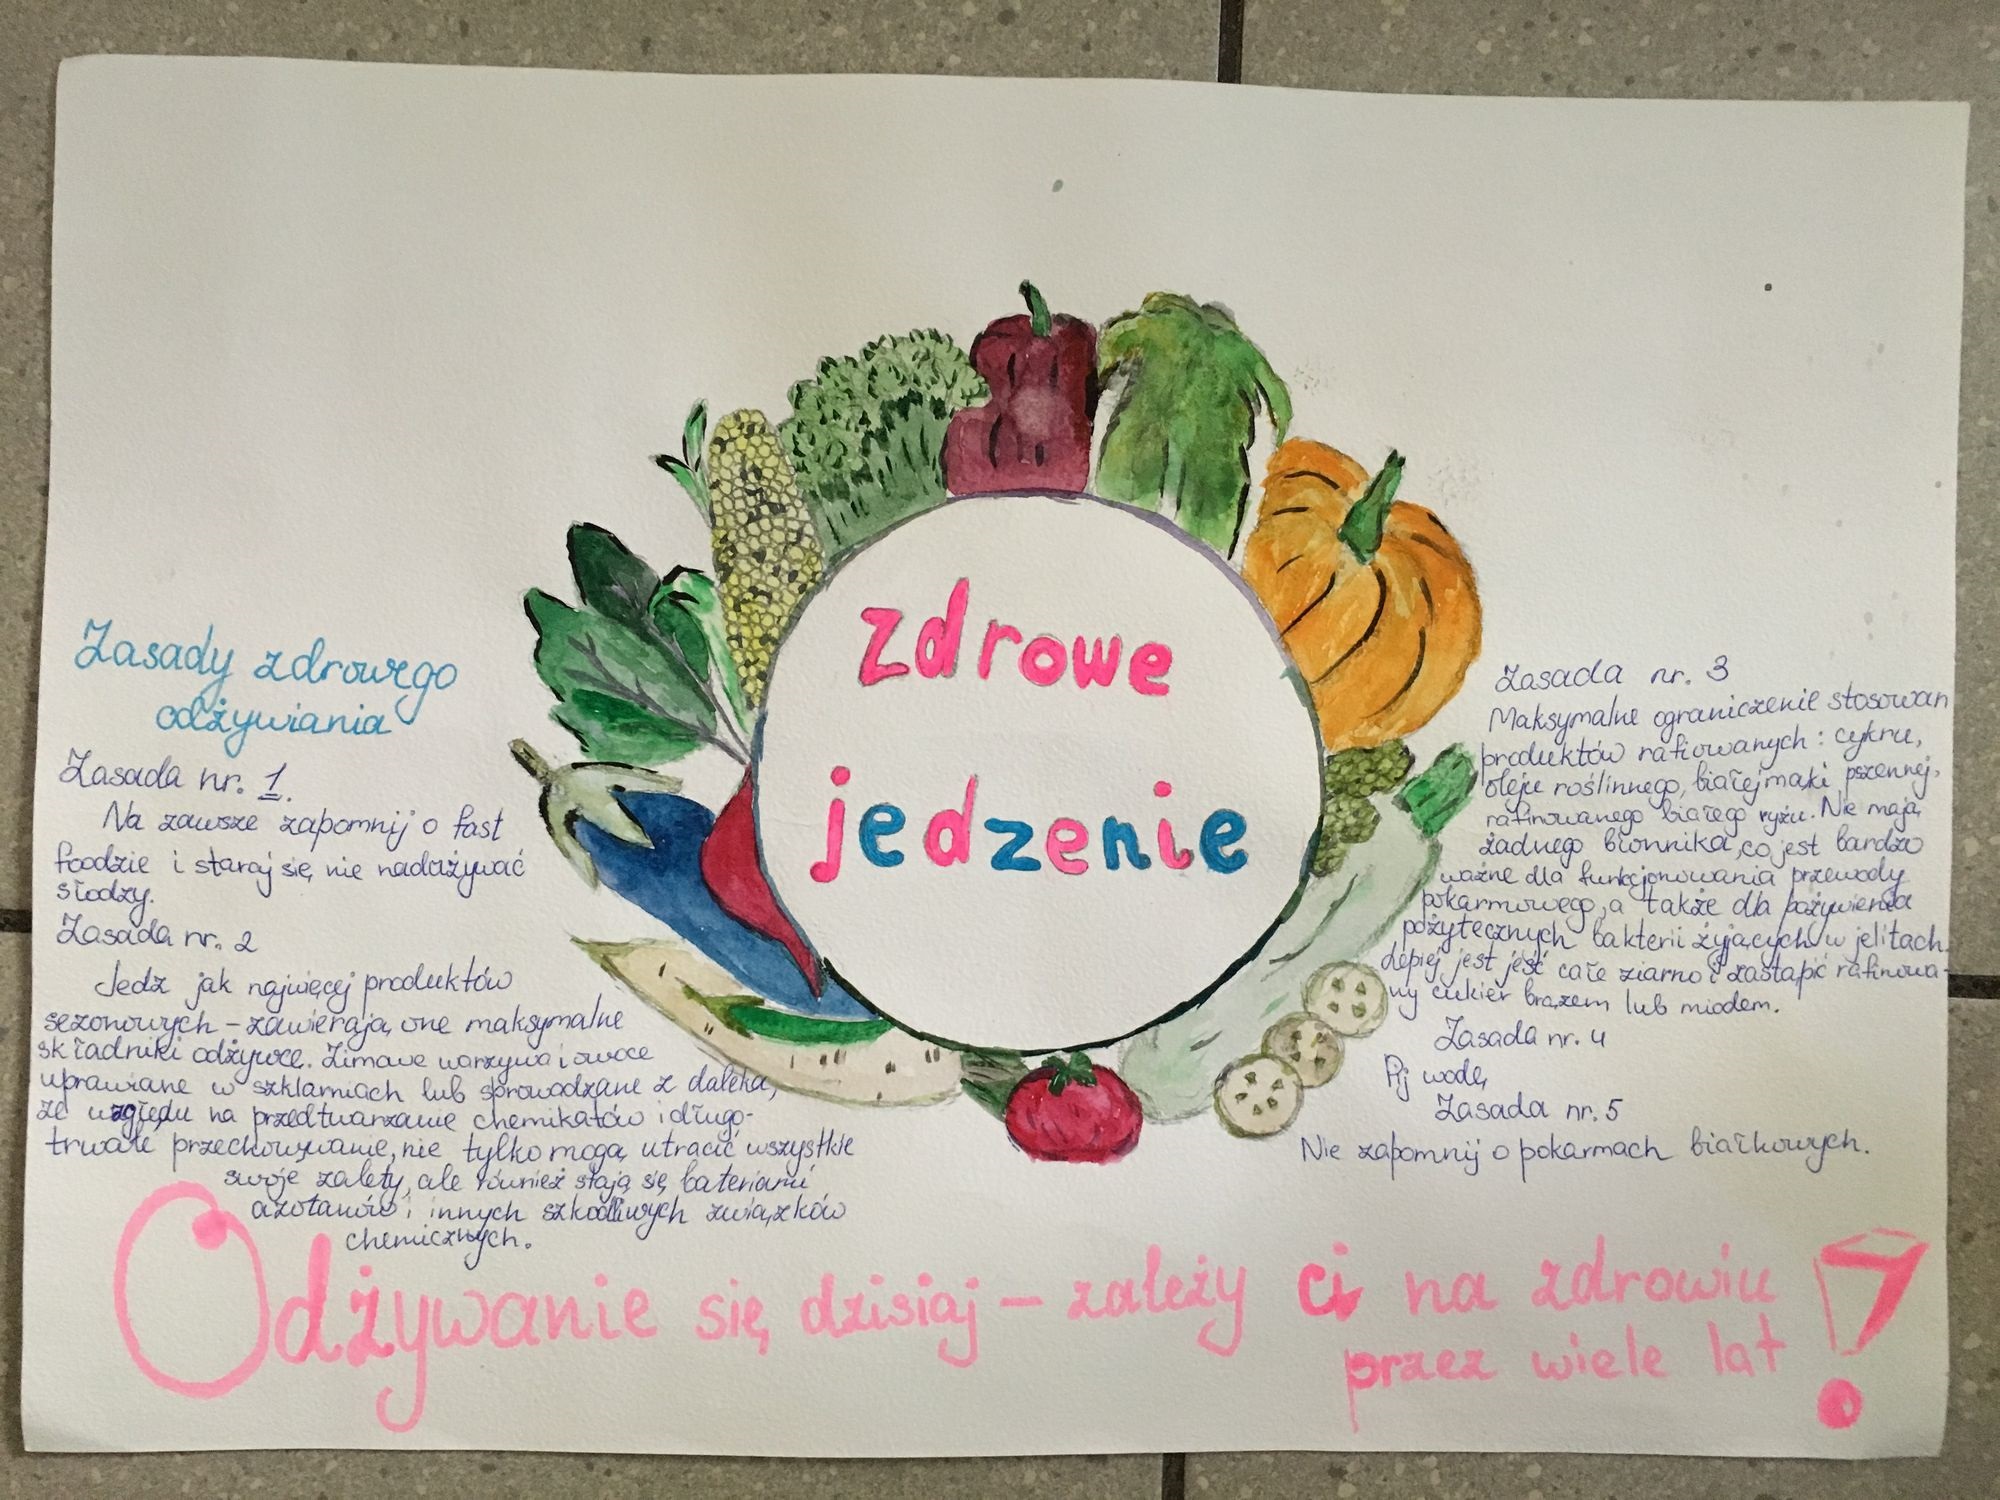 zdrowe
jedzenie
Zasady zdrowego
odżywiania
Zasada nr. 1.
Na zawsze zapomnij o fast
foodzie i staraj się nie nadużywać
słodzy.
Zasada nr. 2
Jedz jak najwięcej produktów
sezonowych – zawierają one maksymalne
składniki odżywce. Zimowe warzywa i owoce
uprawiane w szklarniach lub sprowadzane z daleka,
ze względu na przedtwarzanie chemikatów i długo-
trwałe przechowywanie, nie tylko mogą utracić wszystkie
swoje zalety, ale również stają się bateriami
azotanów i innych szkodliwych związków
chemicznych.
Zasada nr. 3
Maksymalne ograniczenie stosowan
produktów rafiowanych : cykru,
oleju roślinnego, białej mąki pszennej,
rafinowanego białego ryżu. Nie mają
żadnego błonnika, co jest bardzo
ważne dla funkcjonowania przewody
pokarmowego, a także dla pożywienia
pożytecznych bakterii żyjących w jelitach.
Lepiej jest jeść całe ziarno i zastąpić rafinowa-
ny cukier brązem lub miodem.
Zasada nr. 4
Pij wodę
Zasada nr. 5
Nie zapomnij o pokarmach białkowych.
Odżywanie się dzisiaj – zależy ci na zdrowiu
przez wiele lat !